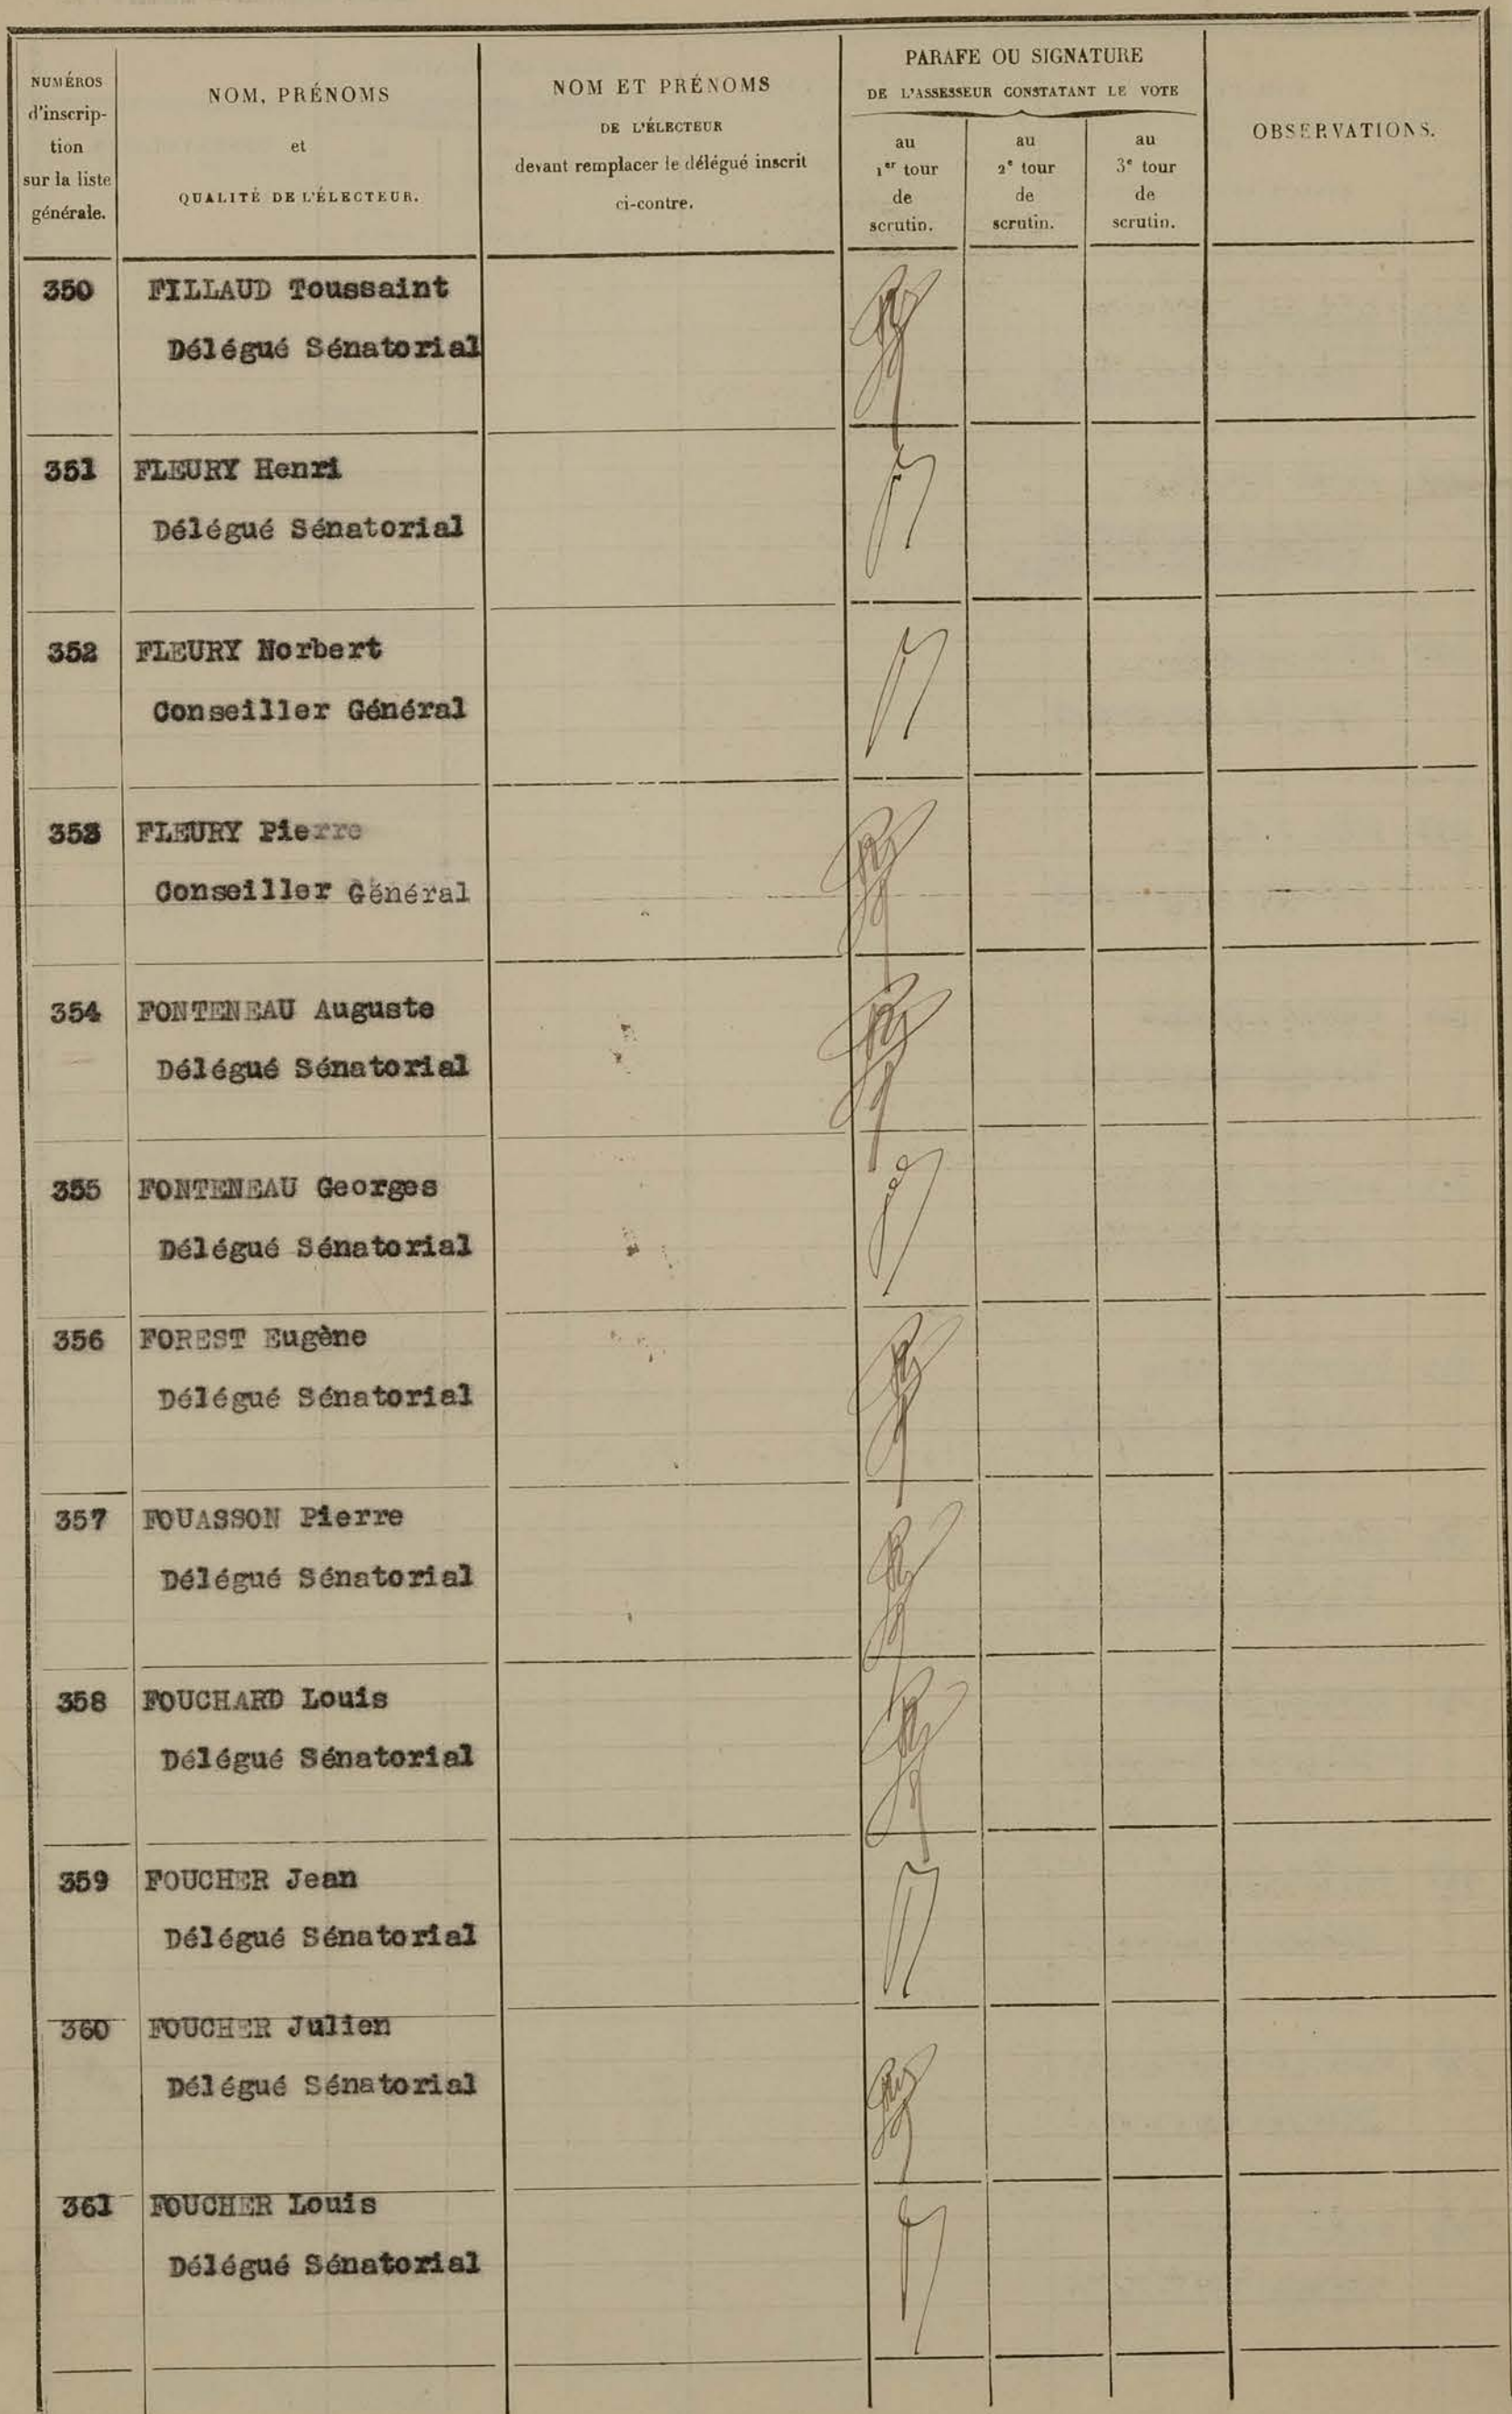 NUMÉROS
d'inscrip-
tion
sur la liste
générale.
NOM, PRÉNOMS
et
QUALITÉ DE L'ÉLECTEUR.
NOM ET PRÉNOMS
DE L'ÉLECTEUR
devant remplacer le délégué inscrit
ci-contre.
PARAFE OU SIGNATURE
DE L'ASSESSEUR CONSTATANT LE VOTE
au
1er tour
de
scrutin.
au
2e tour
de
scrutin.
au
3e tour
de
scrutin.
OBSERVATIONS.
350 FILLAUD Toussaint
Délégué Sénatorial
351 FLEURY Henri
Délégué Sénatorial
352 FLEURY Norbert
Conseiller Général
353 FLEURY Pierre
Conseiller Général
354 FONTENEAU Auguste
Délégué Sénatorial
355 FONTENEAU Georges
Délégué Sénatorial
356 FOREST Eugène
Délégué Sénatorial
357 FOUASSON Pierre
Délégué Sénatorial
358 FOUCHARD Louis
Délégué Sénatorial
359 FOUCHER Jean
Délégué Sénatorial
360 FOUCHER Julien
Délégué Sénatorial
361 FOUCHER Louis
Délégué Sénatorial